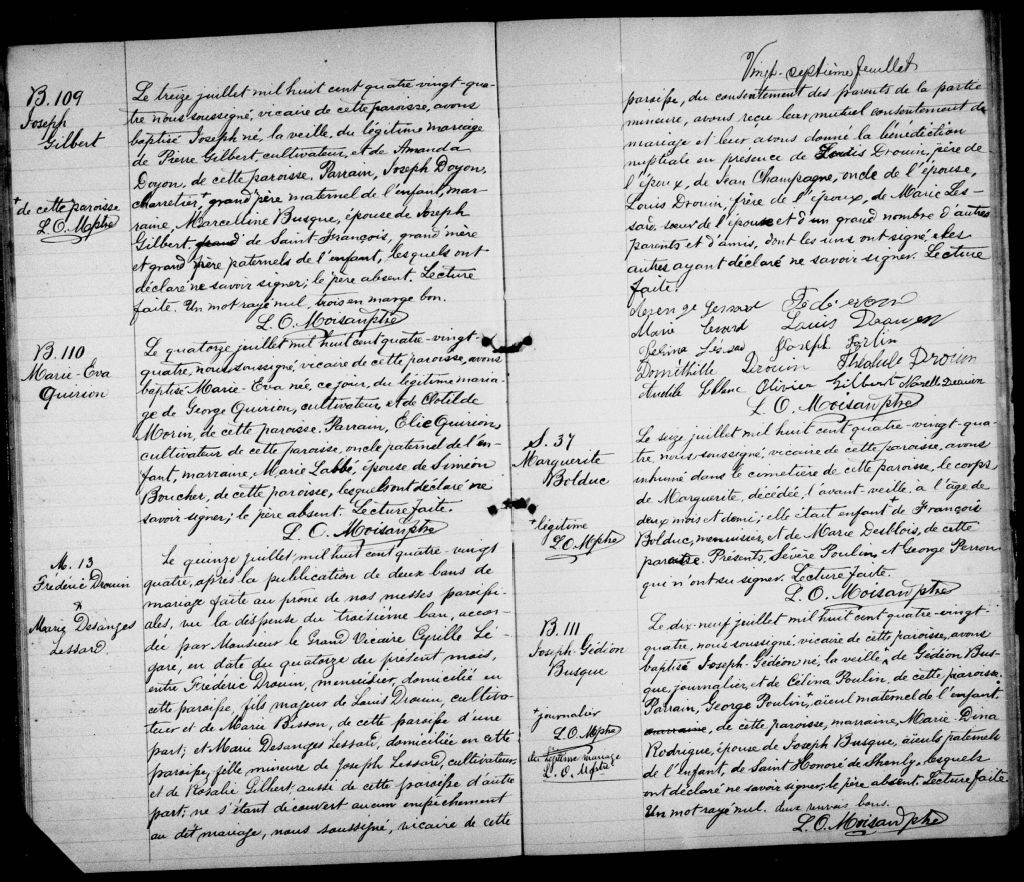 B. 109
Joseph
Gilbert
+ de cette paroisse
L. O. M ptre
Le treize juillet mil huit cent quatre-vingt-qua-
tre nous soussigné, vicaire de cette paroisse, avons
baptisé Joseph né, la veille, du légitime mariage
de Pierre Gilbert cultivateur, et de Amanda
Doyon, de cette paroisse. Parrain, Joseph Doyon,
charretier,+ grand père maternel de l'enfant, mar-
raine, Marcelline Busque, épouse de Joseph
Gilbert grand de Saint-François, grand mère
et grand père paternels de l'enfant, lesquels ont
déclaré ne savoir signer; le père absent. Lecture
faite. Un mot rayé nul, trois en marge bon.
L. O. Moisan ptre
B. 110
Marie-Eva
Quirion
Le quatorze juillet mil huit cent quatre-vingt-
quatre, nous soussigné, vicaire de cette paroisse, avons
baptisé Marie-Eva née, ce jour, du légitime maria-
ge de George Quirion, cultivateur, et de Clotilde
Morin, de cette paroisse. Parrain, Elie Quirion,
cultivateur de cette paroisse, oncle paternel de l'en-
fant, marraine, Marie Labbé, épouse de Siméon
Boucher, de cette paroisse, lesquels ont déclaré ne
savoir signer; le père absent. Lecture faite.
L. O. Moisan ptre
M. 13
Frédéric Drouin
&
Marie Desanges
Lessard.
Le quinze juillet, mil huit cent quatre-vingt
quatre, après la publication de deux bans de
mariage faite au prône de nos messes paroissi-
ales, vu la dispense du troisième ban, accor-
dée par Monsieur le Grand Vicaire Cyrille Lé-
gare, en date du quatorze du présent mois,
entre Frédéric Drouin, menuisier, domicilié en
cette paroisse, fils majeur de Louis Drouin, cultiva-
teur et de Marie Bisson, de cette paroisse d'une
part; et Marie Desanges Lessard, domiciliée en cette
paroisse, fille mineure de Joseph Lessard, cultivateur,
et de Rosalie Gilbert aussi de cette paroisse d'autre
part; ne s'étant découvert aucun empêchement
au dit mariage, nous soussigné, vicaire de cette
Vingt-septième feuillet
paroisse, du consentement des parents de la partie
mineure, avons reçu leur mutuel consentement de
mariage et leur avons donné la bénédiction
nuptiale en présence de Louis Drouin, père de
l'époux, de Jean Champagne, oncle de l'épouse,
Louis Drouin, frère de l'époux, de Marie Les-
sard, soeur de l'épouse et d'un grand nombre d'autres
parents et d'amis, dont les uns ont signé, & les
autres ayant déclaré ne savoir signer. Lecture
faite.
Marie Lesard Louis Drouin
Joseph
Domithille Drouin Théofule Drouin
LeBlanc Olivier Gilbert Drouin
L. O. Moisan ptre
S. 37
Marguerite
Bolduc
+ légitime
L. O. M ptre
Le seize juillet mil huit cent quatre-vingt-qua-
tre, nous soussigné, vicaire de cette paroisse, avons
inhumé dans le cimetière de cette paroisse, le corps
de Marguerite, décédée l'avant-veille, à l'âge de
deux mois et demi; elle était enfant+ de François
Bolduc, menuisier, et de Marie Deblois, de cette
paroisse. Présents, Sévère Poulin, et George Perron
qui n'ont su signer. Lecture faite.
L. O. Moisan ptre
B. 111
Joseph Gédéon
Busque
+ journalier
L. O. M ptre
du légitime mariage
L. O. M ptre
Le dix-neuf juillet mil huit cent quatre-vingt-
quatre, nous soussigné, vicaire de cette paroisse, avons
baptisé Joseph Gédéon né, la veille, de Gédéon Bus-
que, journalier, et de Célina Poulin, de cette paroisse.
Parrain, George Poulin,+ aïeul maternel de l'enfant
marraine, de cette paroisse, marraine, Marie Dina
Rodrigue, épouse de Joseph Busque, aïeuls paternels
de l'enfant, de Saint Honoré de Shenly, lesquels
ont déclaré ne savoir signer, le père absent. Lecture faite
Un mot rayé nul. deux renvois bons.
L. O. Moisan ptre